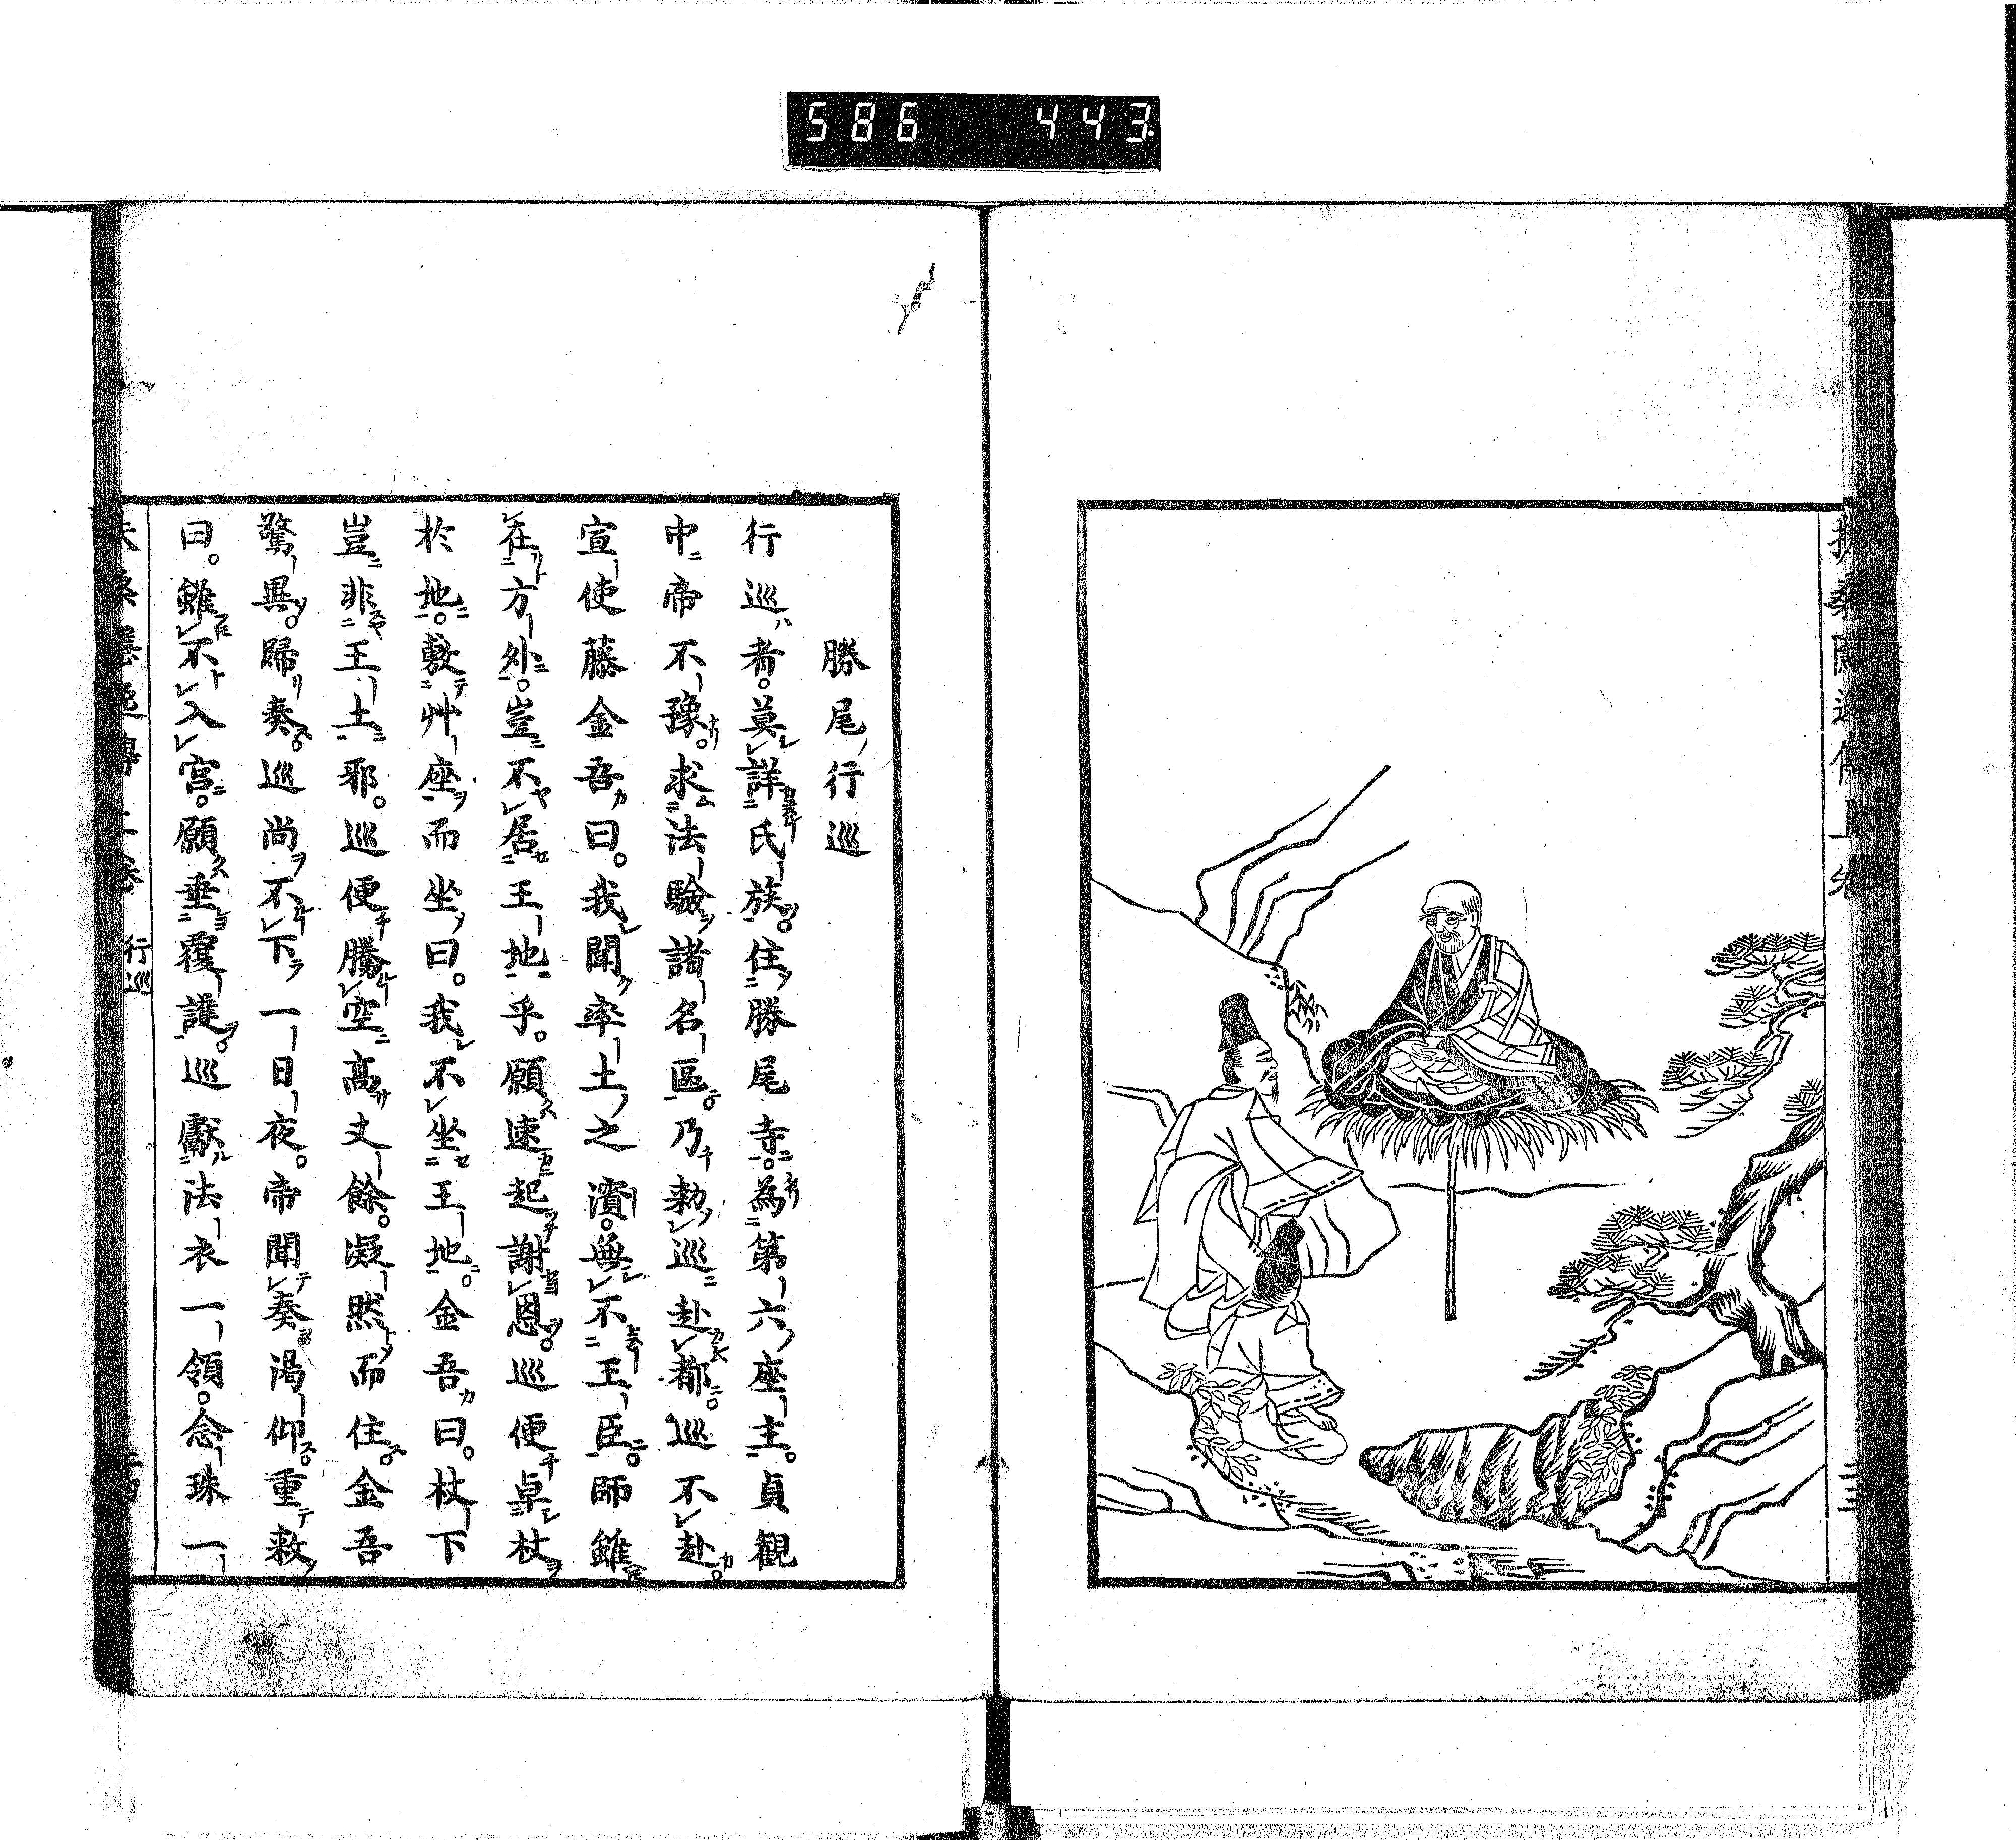 586 443
扶桑隱逸傳上卷
勝尾行巡
行巡者。莫詳氏族。住勝尾寺。為第六座主。貞観
中帝不豫。求法驗諸名區。乃勅巡赴都。巡不赴。
宣使藤金吾曰。我聞率土之濱。無不王臣。師雖
在方外。豈不居王地乎。願速起謝恩。巡便卓杖
於地。敷艸座而坐曰。我不坐王地。金吾曰。杖下
豈非王土邪。巡便騰空高丈餘。凝然而住。金吾
驚異。歸奏。巡尚不下一日夜。帝聞奏渴仰。重敕
曰。雖不入宮。願垂覆護。巡獻法衣一領。念珠一
行巡